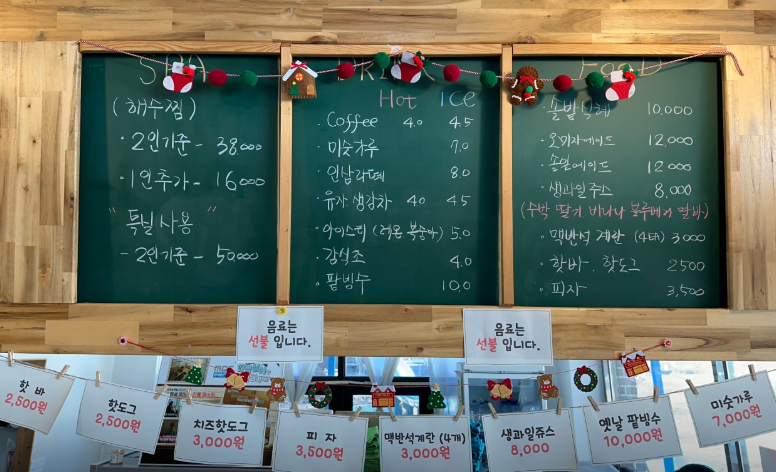 SPA
(해수찜)
· 2인기준 - 38000
· 1인추가 - 16000
"독빌사용"
- 2인기준 - 50000
DRINK
Hot Ice
· Coffee 4.0 4.5
· 미숫가루 7.0
· 인삼라떼 8.0
· 유자 생강차 4.0 4.5
· 아이스티 (레몬 복숭아) 5.0
· 감식초 4.0
· 팥빙수 10.0
FOOD
· 솔빌식혜 10,000
· 오미자에이드 12,000
· 솔잎에이드 12,000
· 생과일쥬스 8,000
(수박 딸기 바나나 블루베리)
· 맥반석 계란 (4개) 3000
· 핫바 . 핫도그 2500
· 피자 3,500
음료는
선불 입니다.
음료는
선불 입니다.
핫 바
2,500원
핫도그
2,500원
치즈핫도그
3,000원
피 자
3,500원
맥반석계란 (4개)
3,000원
생과일쥬스
8,000
옛날 팥빙수
10,000원
미숫가루
7,000원